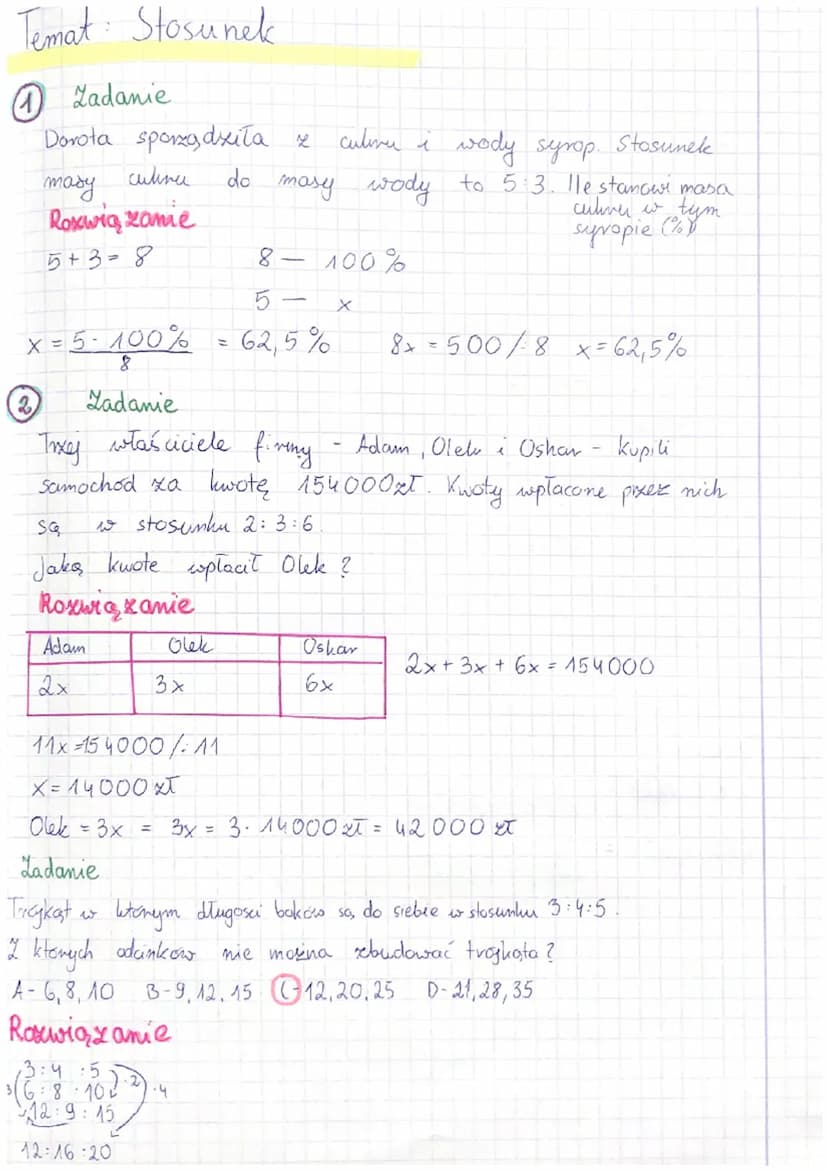 Temat: Stosunek
1 Zadanie
Dorota sporządziła z cukru i wody syrop. Stosunek
masy cukru do masy wody to 5:3. Ile stanowi masa
cukru w tym
syropie (%)?
Rozwiązanie
5+3=8 8 — 100%
5 — x
x = 5 · 100% / 8 = 62,5% 8x = 500 /:8 x = 62,5%
2 Zadanie
Trzej właściciele firmy - Adam, Olek i Oskar - kupili
samochód za kwotę 154000zł. Kwoty wpłacone przez nich
są w stosunku 2:3:6.
Jaką kwote wpłacił Olek?
Rozwiązanie
Adam Olek Oskar
2x 3x 6x
2x + 3x + 6x = 154000
11x = 154000 /:11
x = 14000 zł
Olek = 3x = 3x = 3 · 14000 zł = 42 000 zł
Zadanie
Trójkąt w którym długosci boków są do siebie w stosunku 3:4:5.
Z ktorych odcinków nie można zbudować trojkąta?
A - 6, 8, 10 B - 9, 12, 15 C - 12, 20, 25 D - 21, 28, 35
Rozwiązanie
3 : 4 : 5
6 : 8 : 10 · 2 · 4
3
12 : 9 : 15
12 : 16 : 20